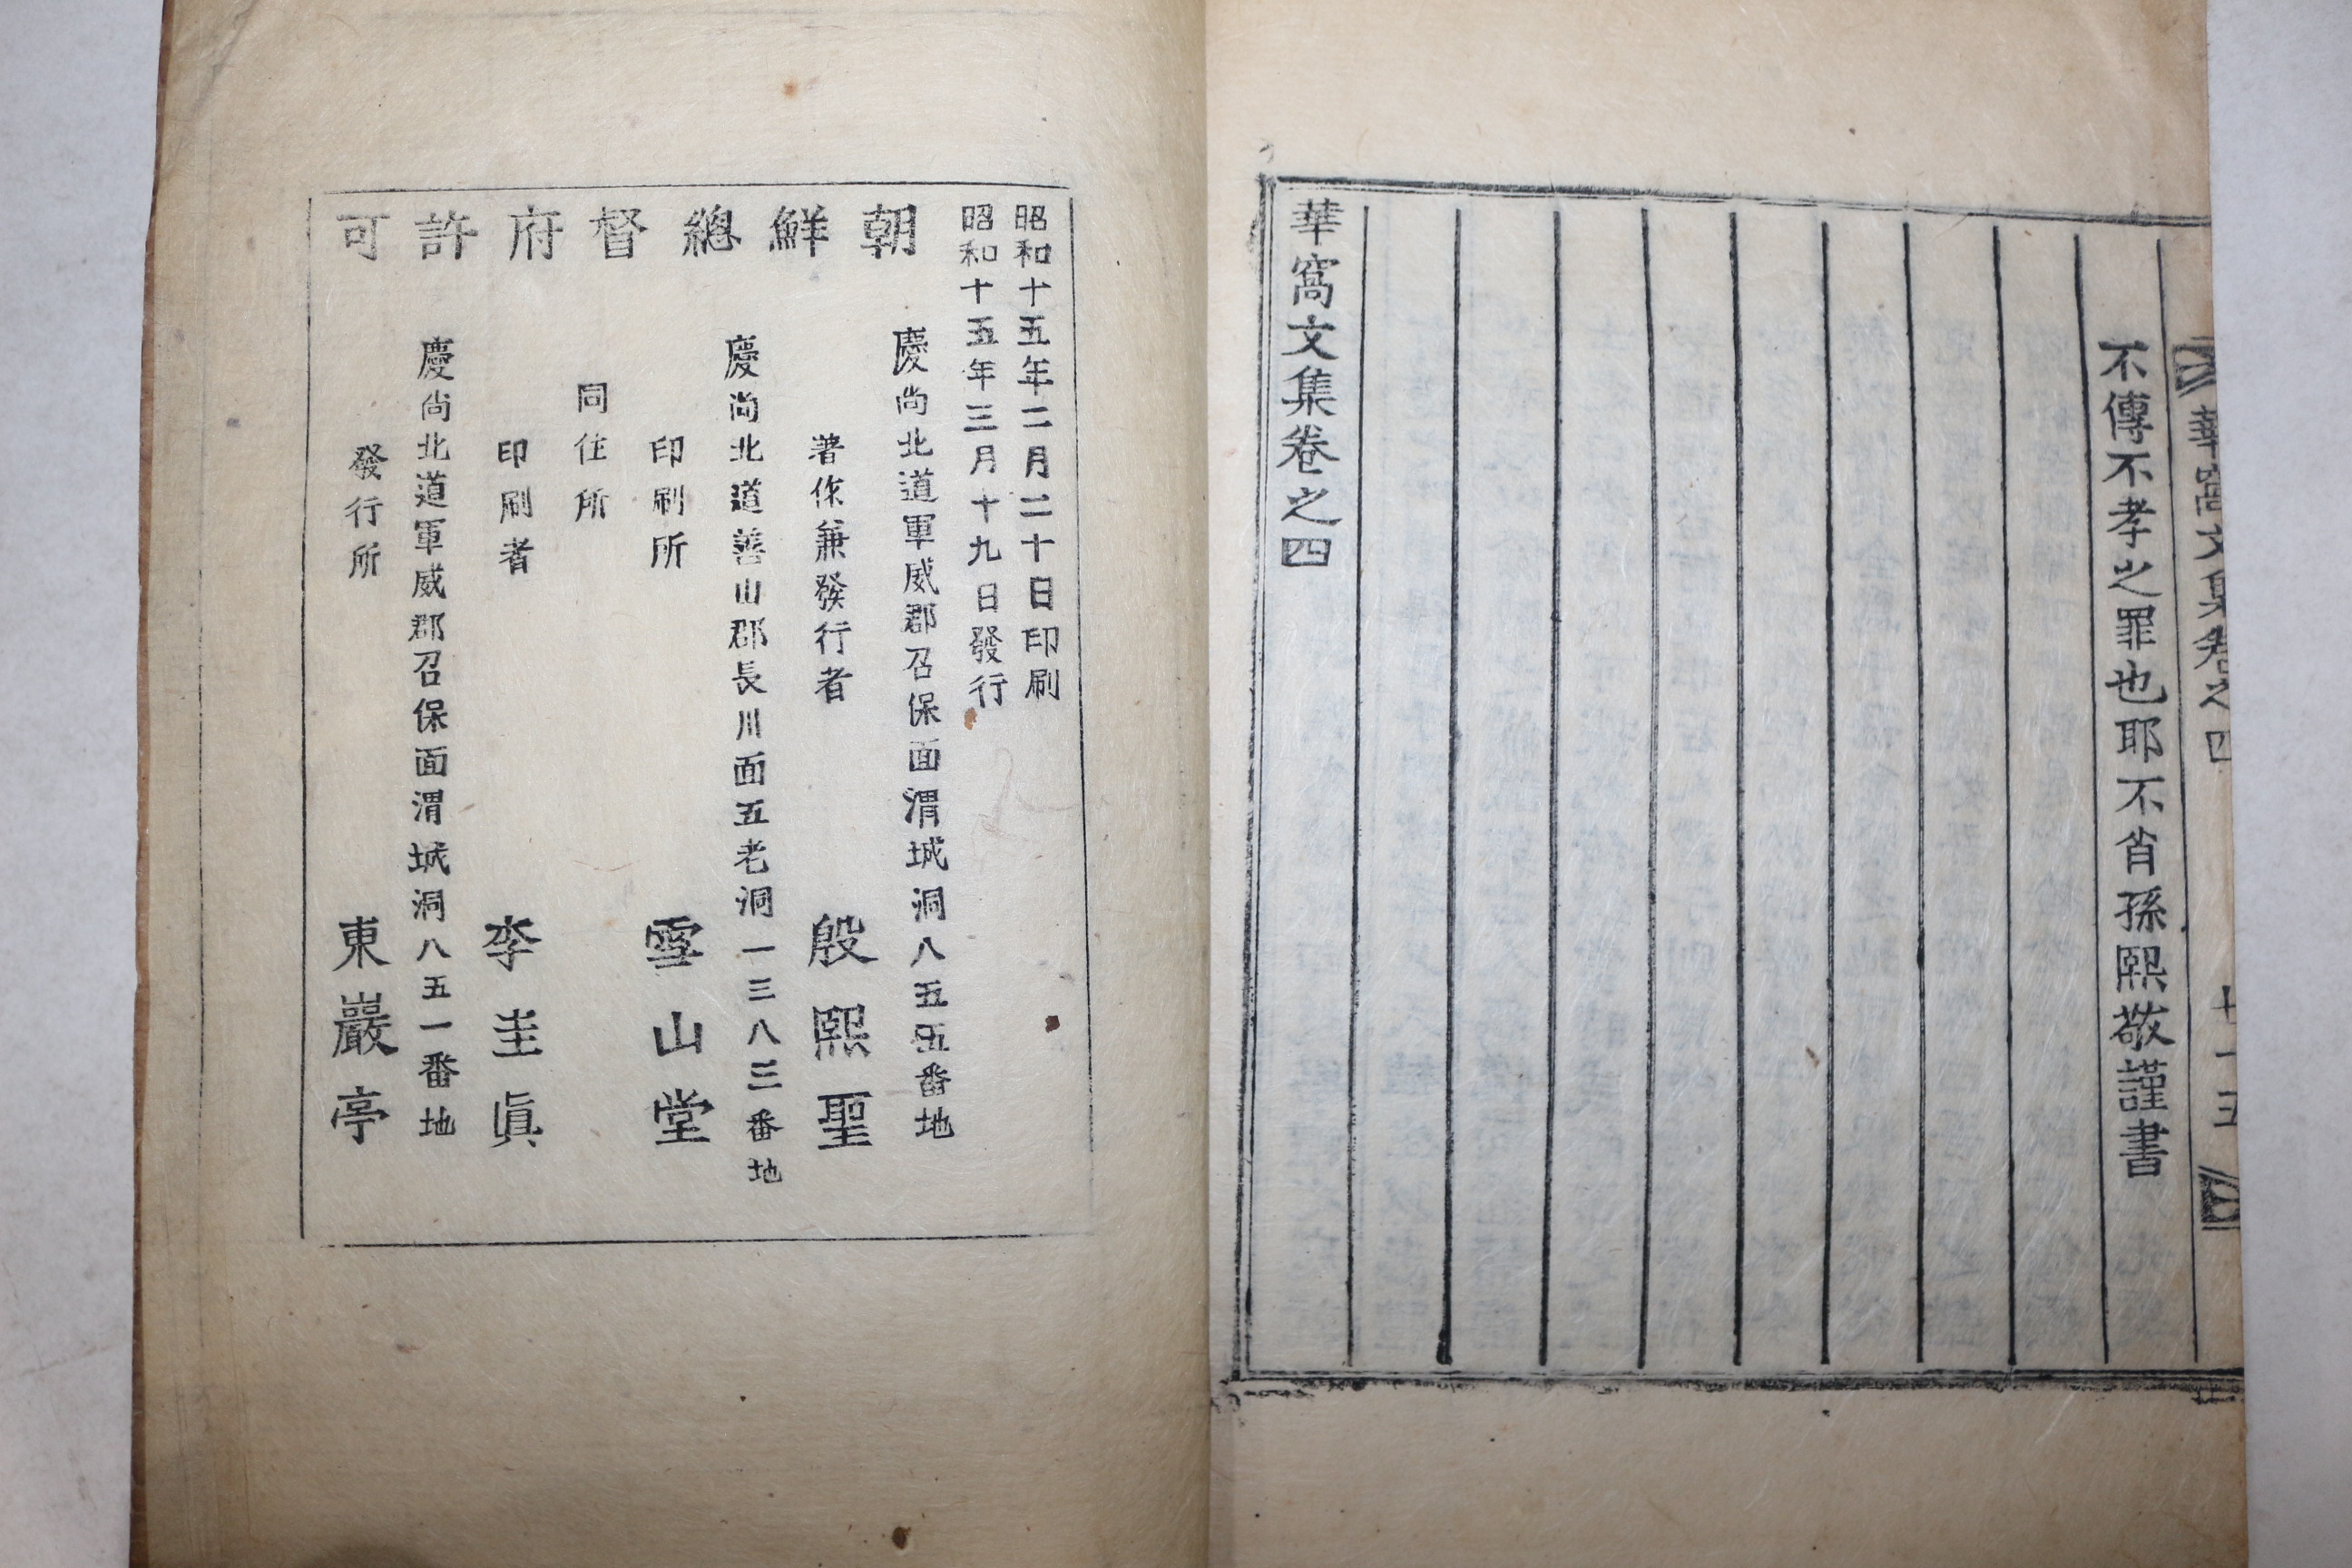 華窩文集卷之四
不傳不孝之罪也耶不肖孫熙敬謹書
華窩文集卷之四
昭和十五年二月二十日印刷
昭和十五年三月十九日發行
朝鮮總督府許可
慶尙北道軍威郡召保面渭城洞八五五番地
著作兼發行者 殷熙聖
慶尙北道善山郡長川面五老洞一三八三番地
印刷所 雪山堂
同住所
印刷者 李圭眞
慶尙北道軍威郡召保面渭城洞八五一番地
發行所 東巖亭